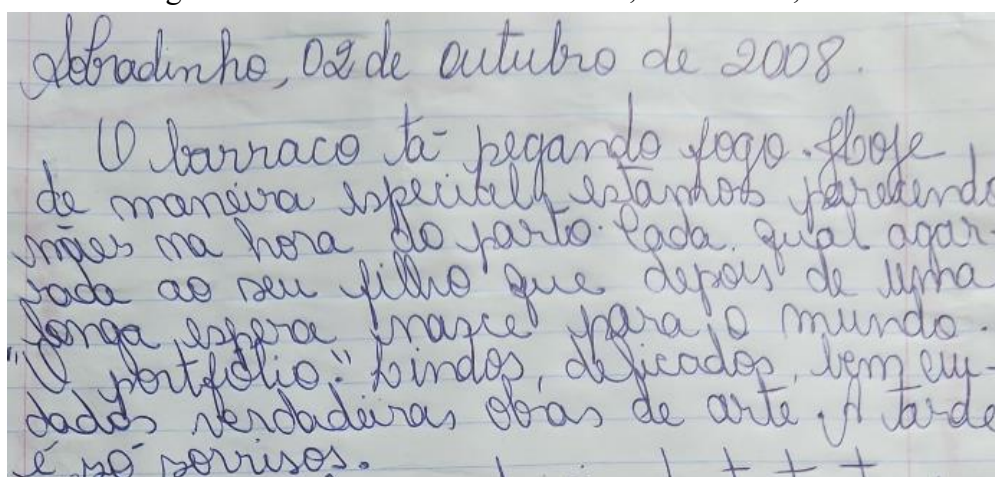 Sobradinho, 02 de outubro de 2008.
O barraco tá pegando fogo. Hoje
de maneira especial, estamos parecendo
mães na hora do parto. Cada qual agar-
rada ao seu filho que depois de uma
longa espera nasce para o mundo.
"O portfólio." Lindos, delicados, bem cui-
dados verdadeiras obras de arte. A tarde
é só sorrisos.